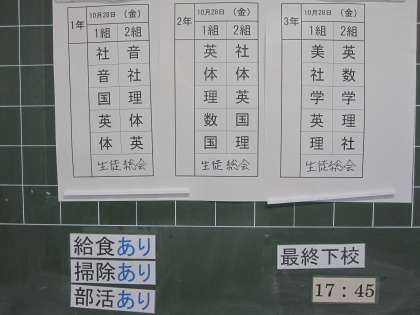 1年 10月28日 (金)
1組 2組
社 音
音 社
国 理
英 体
体 英
生徒総会
2年 10月28日 (金)
1組 2組
英 社
体 体
理 英
数 国
国 理
生徒総会
3年 10月28日 (金)
1組 2組
美 英
社 数
学 学
英 理
理 社
生徒総会
給食あり
掃除あり
部活あり
最終下校
17:45